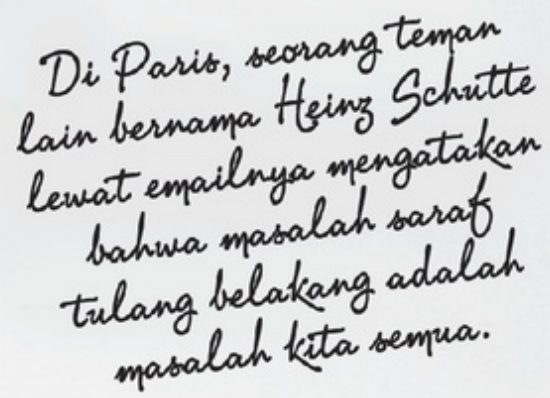 Di Paris, seorang teman
lain bernama Heinz Schutte
lewat emailnya mengatakan
bahwa masalah saraf
tulang belakang adalah
masalah kita semua.